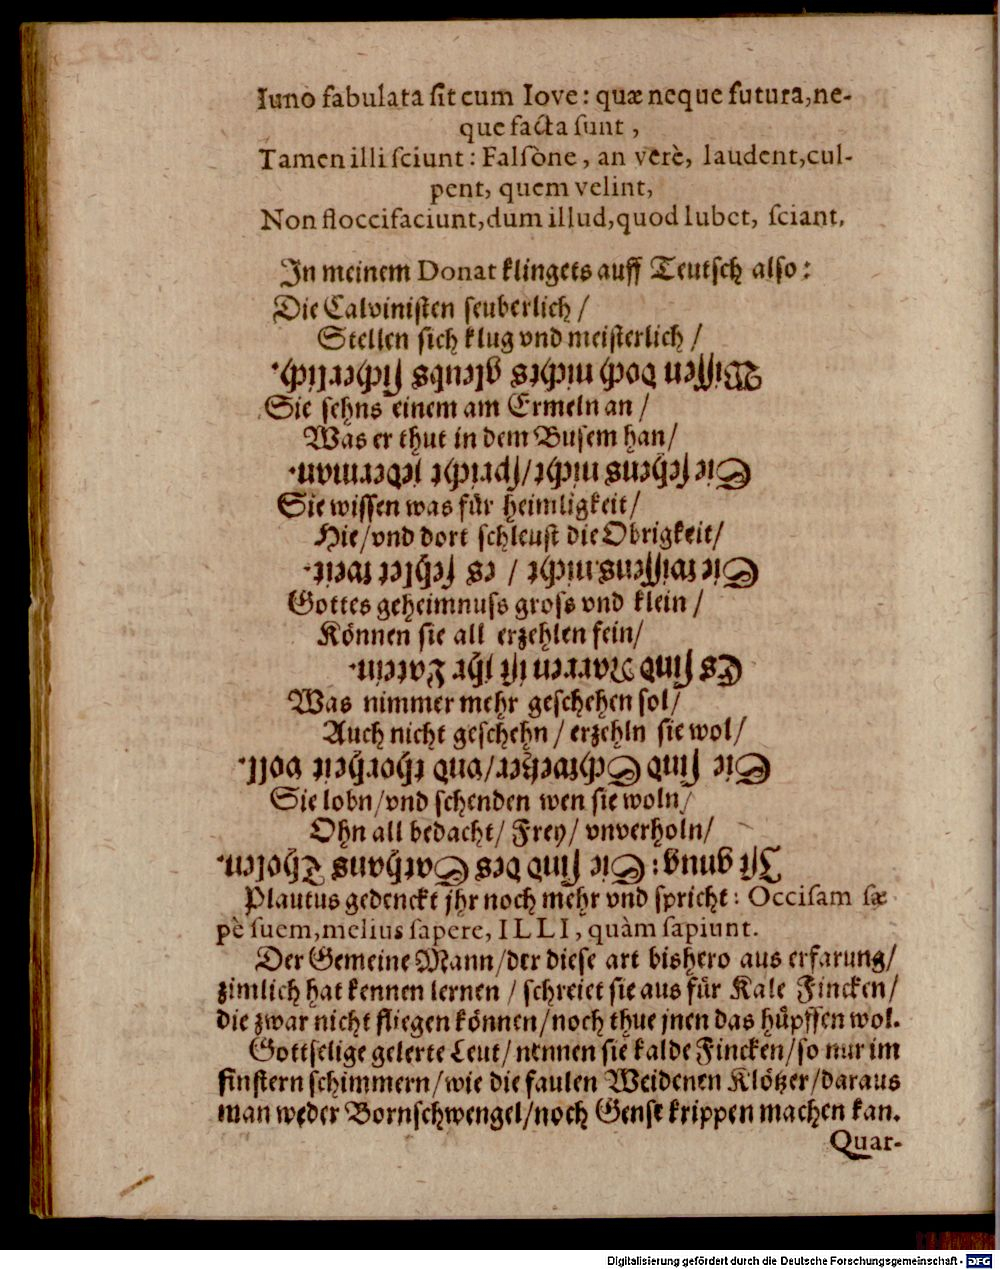 Iuno fabulata ſit cum Iove: quæ neque futura, ne-
que facta ſunt,
Tamen illi ſciunt: Falſòne, an verè, laudent, cul-
pent, quem velint,
Non floccifaciunt, dum illud, quod lubet, ſciant.
In meinem Donat klingets auff Teutſch alſo:
Die Calviniſten ſeuberlich /
Stellen ſich klug vnd meiſterlich /
Wiſſen doch nichts gleubs ſicherlich.
Sie ſehns einem am Ermeln an /
Was er thut in dem Buſem han /
Sie ſehens nicht / ſpricht jederman.
Sie wiſſen was für heimligkeit /
Hie / vnd dort ſchleuſt die Obrigkeit /
Sie wiſſens nicht / es fehlet weit.
Gottes geheimnuſs groſs vnd klein /
Können ſie all erzehlen fein /
Es ſind Narren iſt jhr Latein.
Was nimmer mehr geſchehen ſol /
Auch nicht geſchehn / erzehln ſie wol /
Sie ſind Schwetzer / vnd thorheit voll.
Sie lobn / vnd ſchenden wen ſie woln /
Ohn all bedacht / Frey / vnverholn /
Iſt gnung: Sie ſind des Sathans Tholen.
Plautus gedenckt jhr noch mehr vnd ſpricht: Occiſam ſæ
pè ſuem, melius ſapere, ILLI, quàm ſapiunt.
Der Gemeine Mann / der dieſe art bishero aus erfarung /
zimlich hat kennen lernen / ſchreiet ſie aus für Kale Fincken /
die zwar nicht fliegen können / noch thue jnen das hüpffen wol.
Gottſelige gelerte Leut / nennen ſie kalde Fincken / ſo nur im
finſtern ſchimmern / wie die faulen Weidenen Klötzer / daraus
man weder Bornſchwengel / noch Genſe krippen machen kan.
Quar-
Digitalisierung gefördert durch die Deutsche Forschungsgemeinschaft - DFG